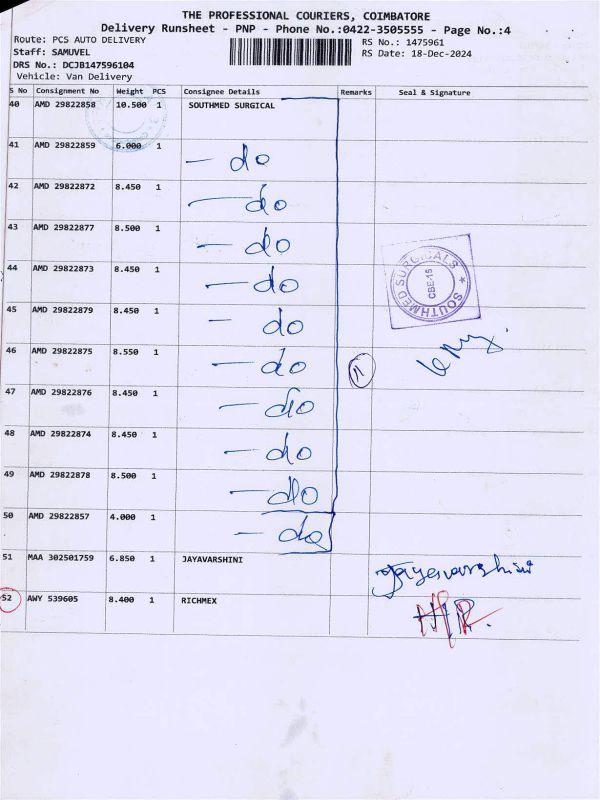 THE PROFESSIONAL COURIERS, COIMBATORE
Delivery Runsheet - PNP - Phone No.:0422-3505555 - Page No.:4
Route: PCS AUTO DELIVERY
RS No.: 1475961
Staff: SAMUVEL
RS Date: 18-Dec-2024
DRS No.: DCJB147596104
Vehicle: Van Delivery
S No Consignment No Weight PCS Consignee Details Remarks Seal & Signature
40 AMD 29822858 10.500 1 SOUTHMED SURGICAL
41 AMD 29822859 6.000 1 - do
42 AMD 29822872 8.450 1 - do
43 AMD 29822877 8.500 1 - do
44 AMD 29822873 8.450 1 - do
SOUTHMED SURGICALS
CBE-15
45 AMD 29822879 8.450 1 - do
46 AMD 29822875 8.550 1 - do
11
47 AMD 29822876 8.450 1 - do
48 AMD 29822874 8.450 1 - do
49 AMD 29822878 8.500 1 - do
50 AMD 29822857 4.000 1 - do
51 MAA 302501759 6.850 1 JAYAVARSHINI Jayavarshini
52 AWY 539605 8.400 1 RICHMEX